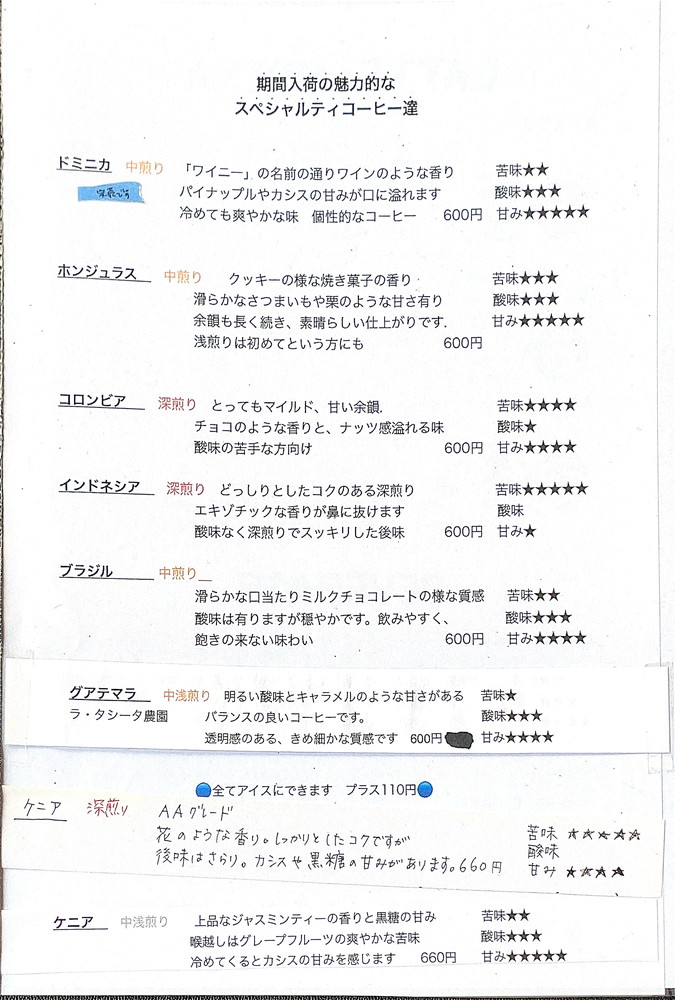 期間入荷の魅力的な
スペシャルティコーヒー達
ドミニカ 中煎り 「ワイニー」の名前の通りワインのような香り 苦味★★
深煎です パイナップルやカシスの甘みが口に溢れます 酸味★★★
冷めても爽やかな味 個性的なコーヒー 600円 甘み★★★★★
ホンジュラス 中煎り クッキーの様な焼き菓子の香り 苦味★★★
滑らかなさつまいもや栗のような甘さ有り 酸味★★★
余韻も長く続き、素晴らしい仕上がりです. 甘み★★★★★
浅煎りは初めてという方にも 600円
コロンビア 深煎り とってもマイルド、甘い余韻. 苦味★★★★
チョコのような香りと、ナッツ感溢れる味 酸味★
酸味の苦手な方向け 600円 甘み★★★★
インドネシア 深煎り どっしりとしたコクのある深煎り 苦味★★★★★
エキゾチックな香りが鼻に抜けます 酸味
酸味なく深煎りでスッキリした後味 600円 甘み★
ブラジル 中煎り
滑らかな口当たりミルクチョコレートの様な質感 苦味★★
酸味は有りますが穏やかです。飲みやすく、 酸味★★★
飽きの来ない味わい 600円 甘み★★★★
グアテマラ 中浅煎り 明るい酸味とキャラメルのような甘さがある 苦味★
ラ・タシータ農園 バランスの良いコーヒーです。 酸味★★★
透明感のある、きめ細かな質感です 600円 甘み★★★★
🔵全てアイスにできます プラス110円🔵
ケニア 深煎り AAグレード
花のような香り。しっかりとしたコクですが 苦味 ★★★★★
後味はさらり。カシスや黒糖の甘みがあります。660円 酸味
甘み ★★★★
ケニア 中浅煎り 上品なジャスミンティーの香りと黒糖の甘み 苦味★★
喉越しはグレープフルーツの爽やかな苦味 酸味★★★
冷めてくるとカシスの甘みを感じます 660円 甘み★★★★★